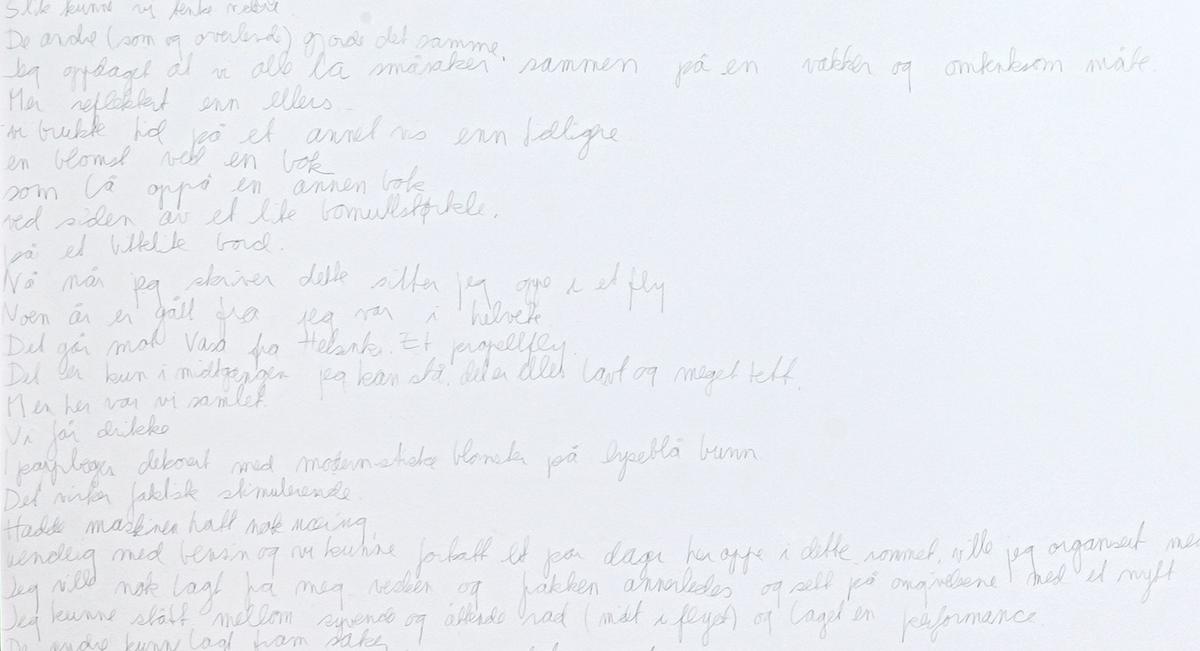 Slik kunne vi tenke videre
De andre (som og overlevde) gjorde det samme.
Jeg oppdaget at vi alle la småsaker sammen på en vakker og omtenksom måte.
Mer reflektert enn ellers.
vi brukte tid på et annet vis enn tidligere
en blomst ved en bok
som lå oppå en annen bok
ved siden av et lite bomullstørkle.
på et bord.
Nå når jeg skriver dette sitter jeg oppe i et fly
Noen år er gått fra jeg var i helvete
Det går mot Vasa fra Helsinki. Et propellfly.
Det er kun i midtgangen jeg kan stå, det er ellers lavt og meget tett.
Men her var vi samlet.
Vi får drikke
I pappbeger dekorert med modernistiske blomster på lyseblå bunn
Det virker faktisk stimulerende.
Hadde maskinen hatt nok næring,
uendelig med bensin og vi kunne fortsatt et par dager her oppe i dette rommet, ville jeg organisert
Jeg ville nok lagt fra meg vesken og jakken annerledes og sett på omgivelsene med et nytt
Jeg kunne stått mellom syvende og åttende rad (midt i flyet) og laget en performance.
De andre kunne lagt fram saker